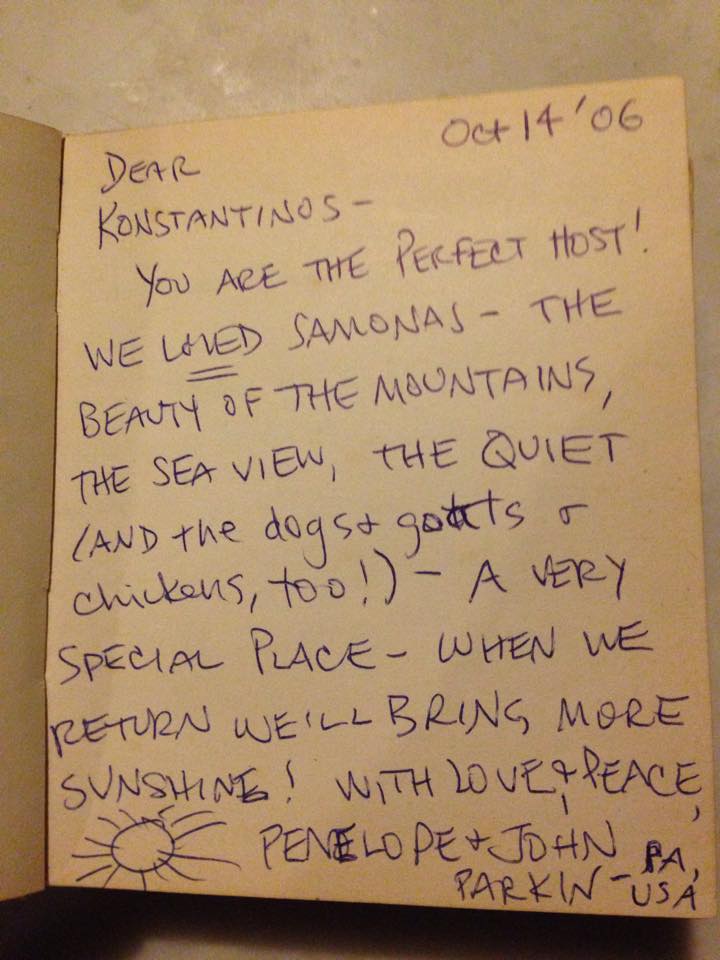 Oct 14 '06
DEAR
KONSTANTINOS -
YOU ARE THE PERFECT HOST!
WE LOVED SAMONAS - THE
BEAUTY OF THE MOUNTAINS,
THE SEA VIEW, THE QUIET
(AND the dogs + goats +
chickens, too!) - A VERY
SPECIAL PLACE - WHEN WE
RETURN WE'LL BRING MORE
SUNSHINE! WITH LOVE & PEACE,
PENELOPE + JOHN
PARKIN - PA,
USA